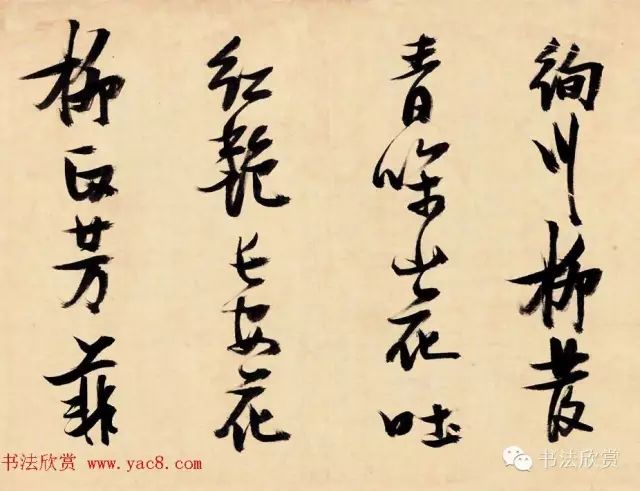 絢川柳發
青花吐
紅艷長安花
柳正芳菲
书法欣赏 www.yac8.com
书法欣赏